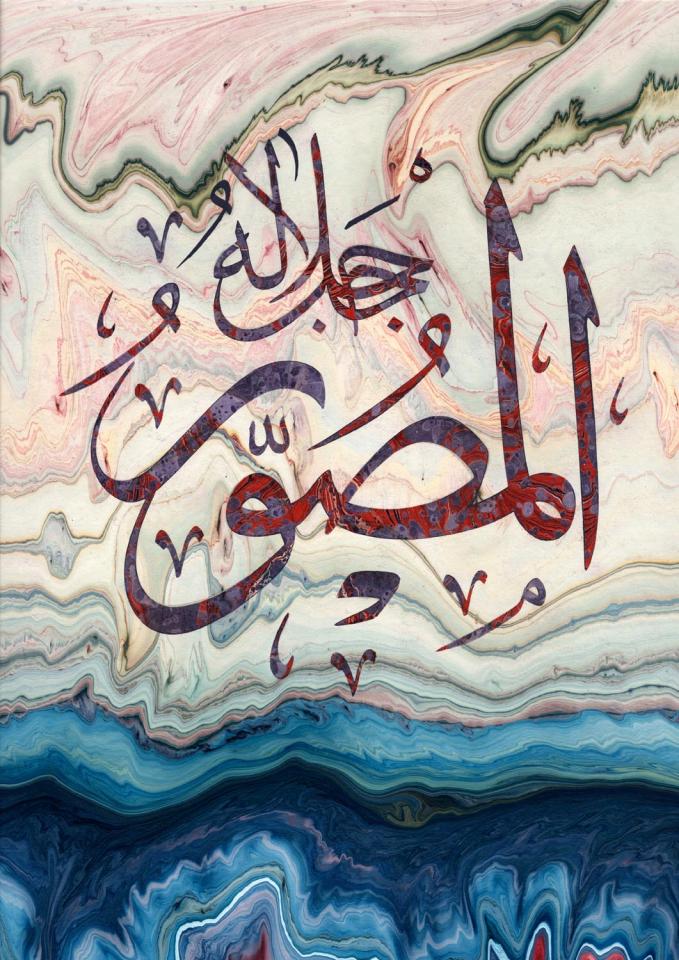 المصوّر
جل جلاله